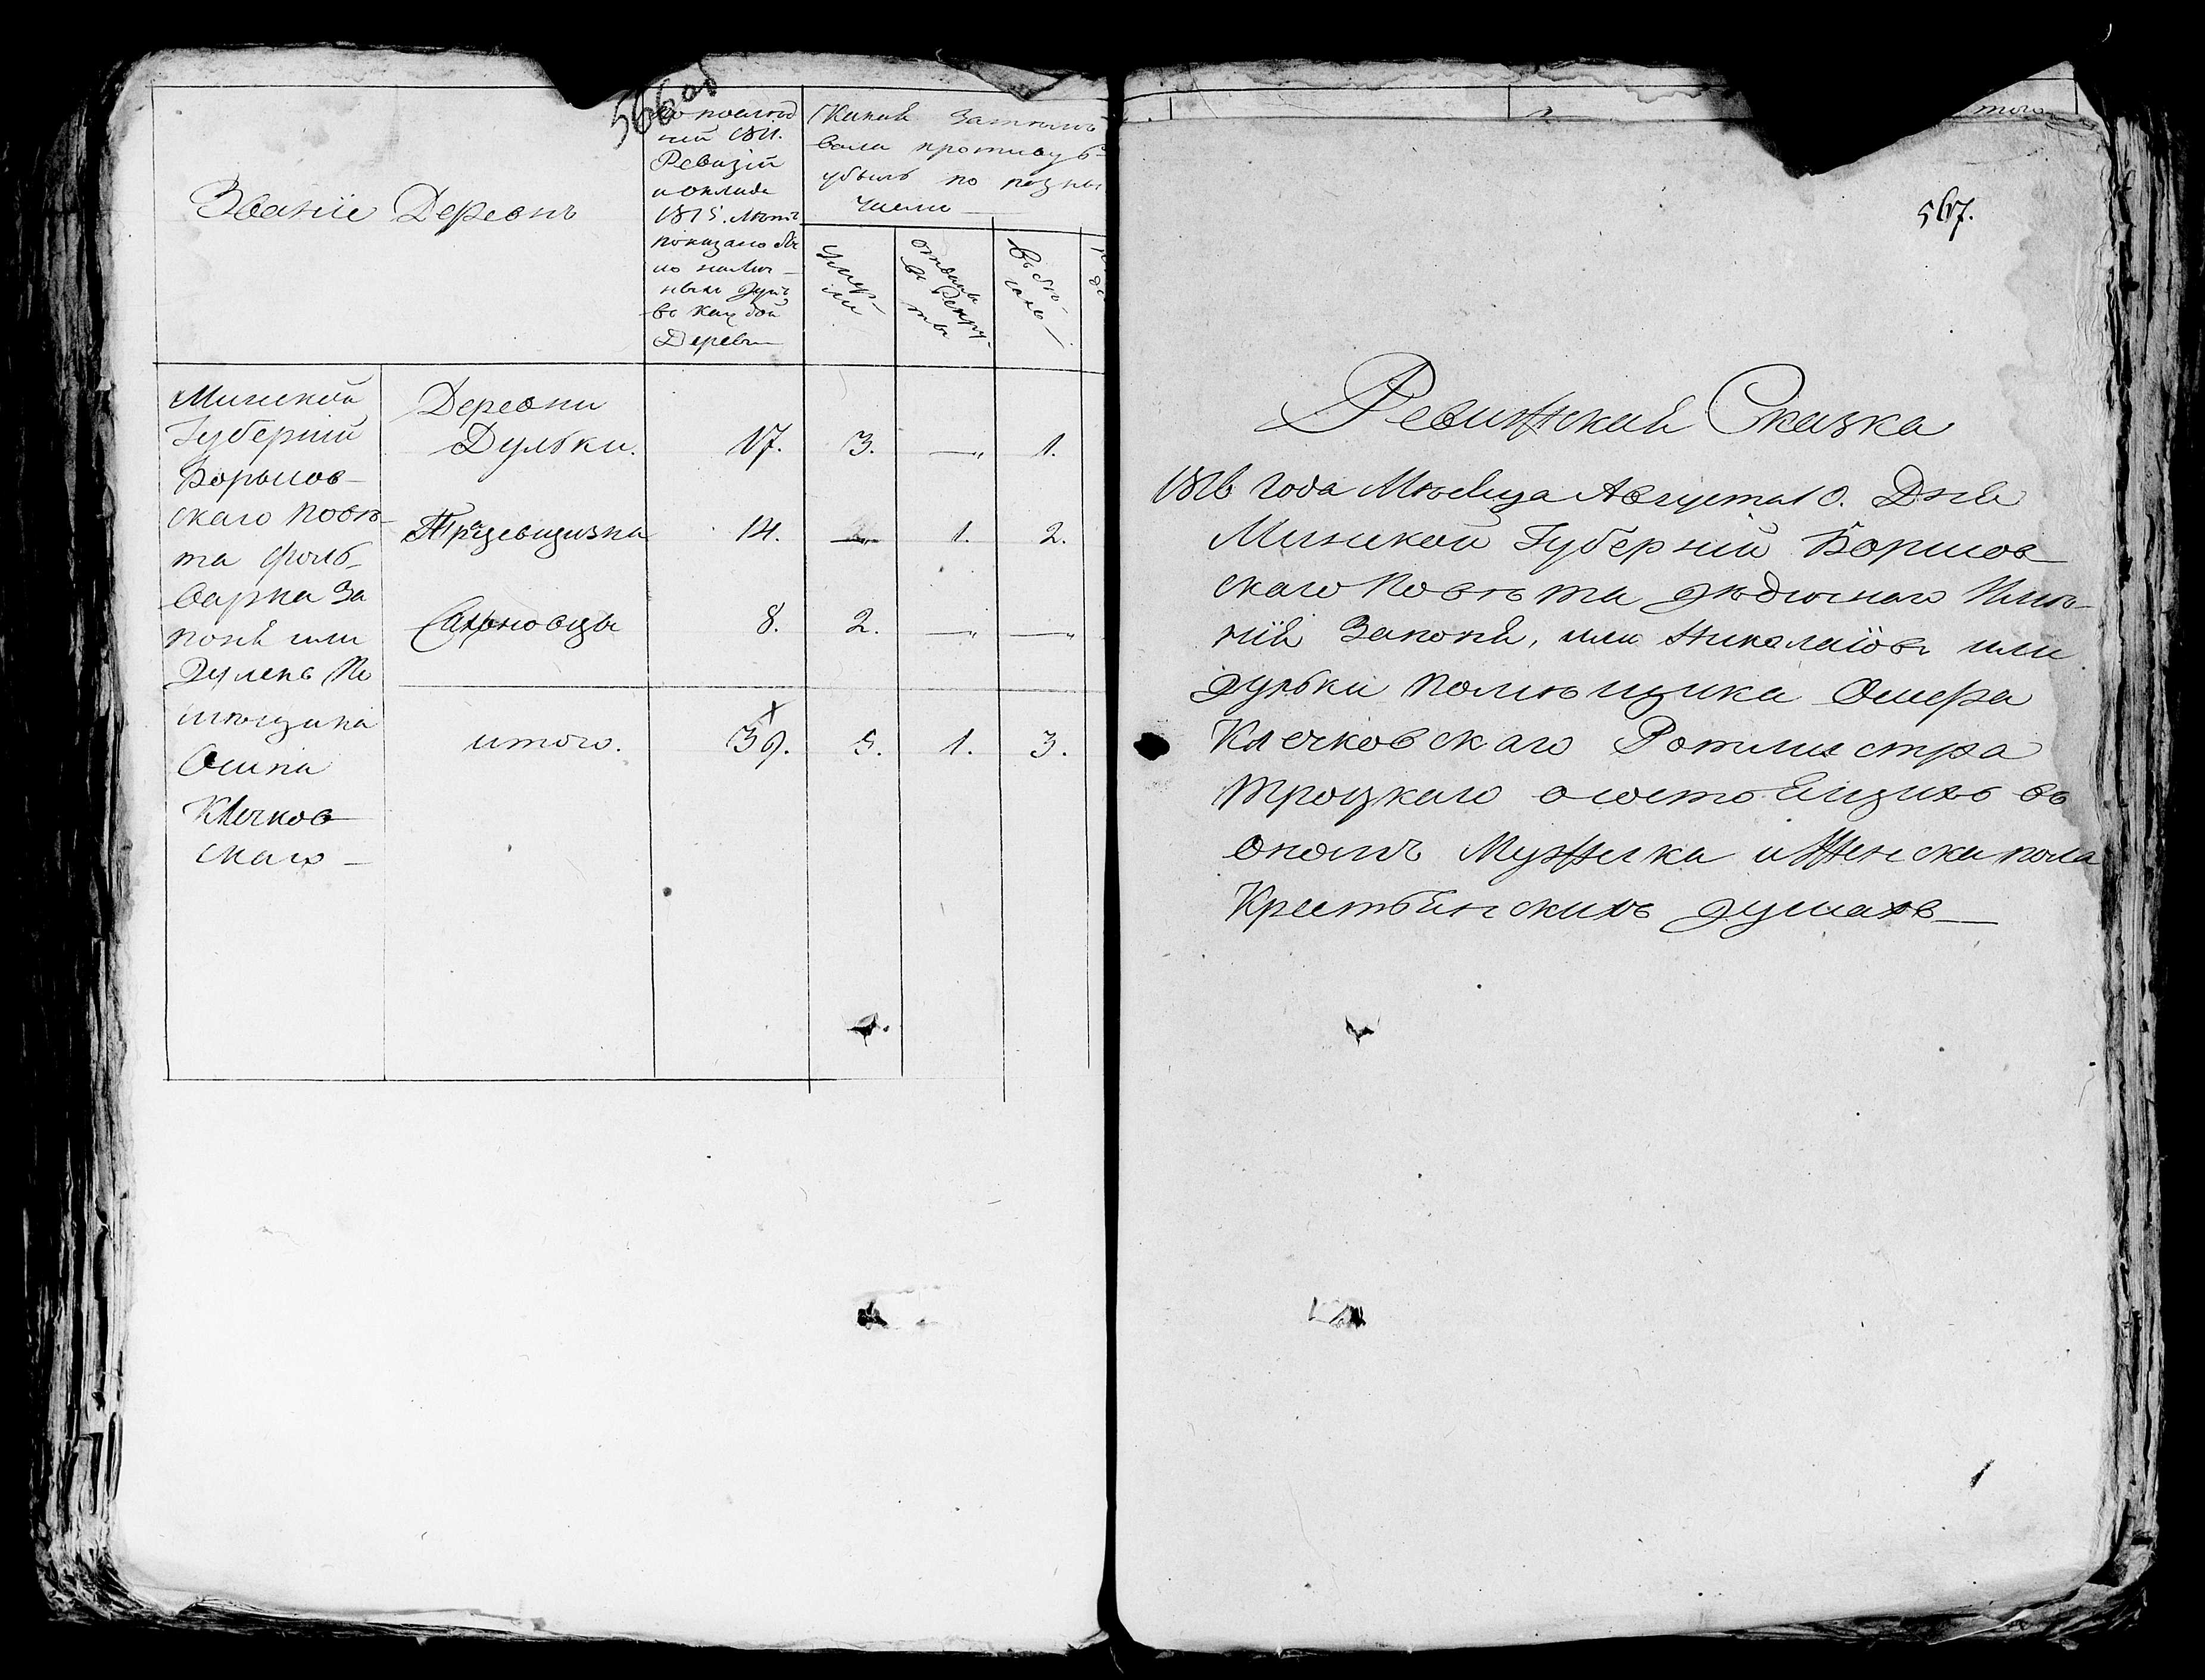 566 об
Званіе Деревнь
По послѣд
ней 1811.
Ревизіи
и оклада
1815. лѣтъ
показано бы
ло налич-
ныхъ душъ
въ каждой
Деревни
Какая затѣмъ
была противу б
убыль по разны
числи
Умер-
ли
отданы
въ Рекру-
ты
въ бѣ-
гахъ
Минской
Губерніи
Борысов-
скаго Повѣ-
та фоль-
варка За
понѣ или
Дулекъ По
мѣщика
Осипа
Клечков
скаго
Деревни
Дульки. 17. 3. — 1.
Трацевщизна 14. — 1. 2.
8. 2. — —
итого. 39. 5. 1. 3.
того
567.
Ревижская Сказка
1816 года Мѣсяца Августа 10. Дня
Минской Губерніи Борисов
скаго Повѣта Имѣ-
нія Запоня, или Николаіовъ или
Дульки Помѣщика
Клечковскаго Ротмистра
Троцкаго о состоящихъ въ
ономъ Мужеска и Женска пола
Крестьянскихъ душахъ